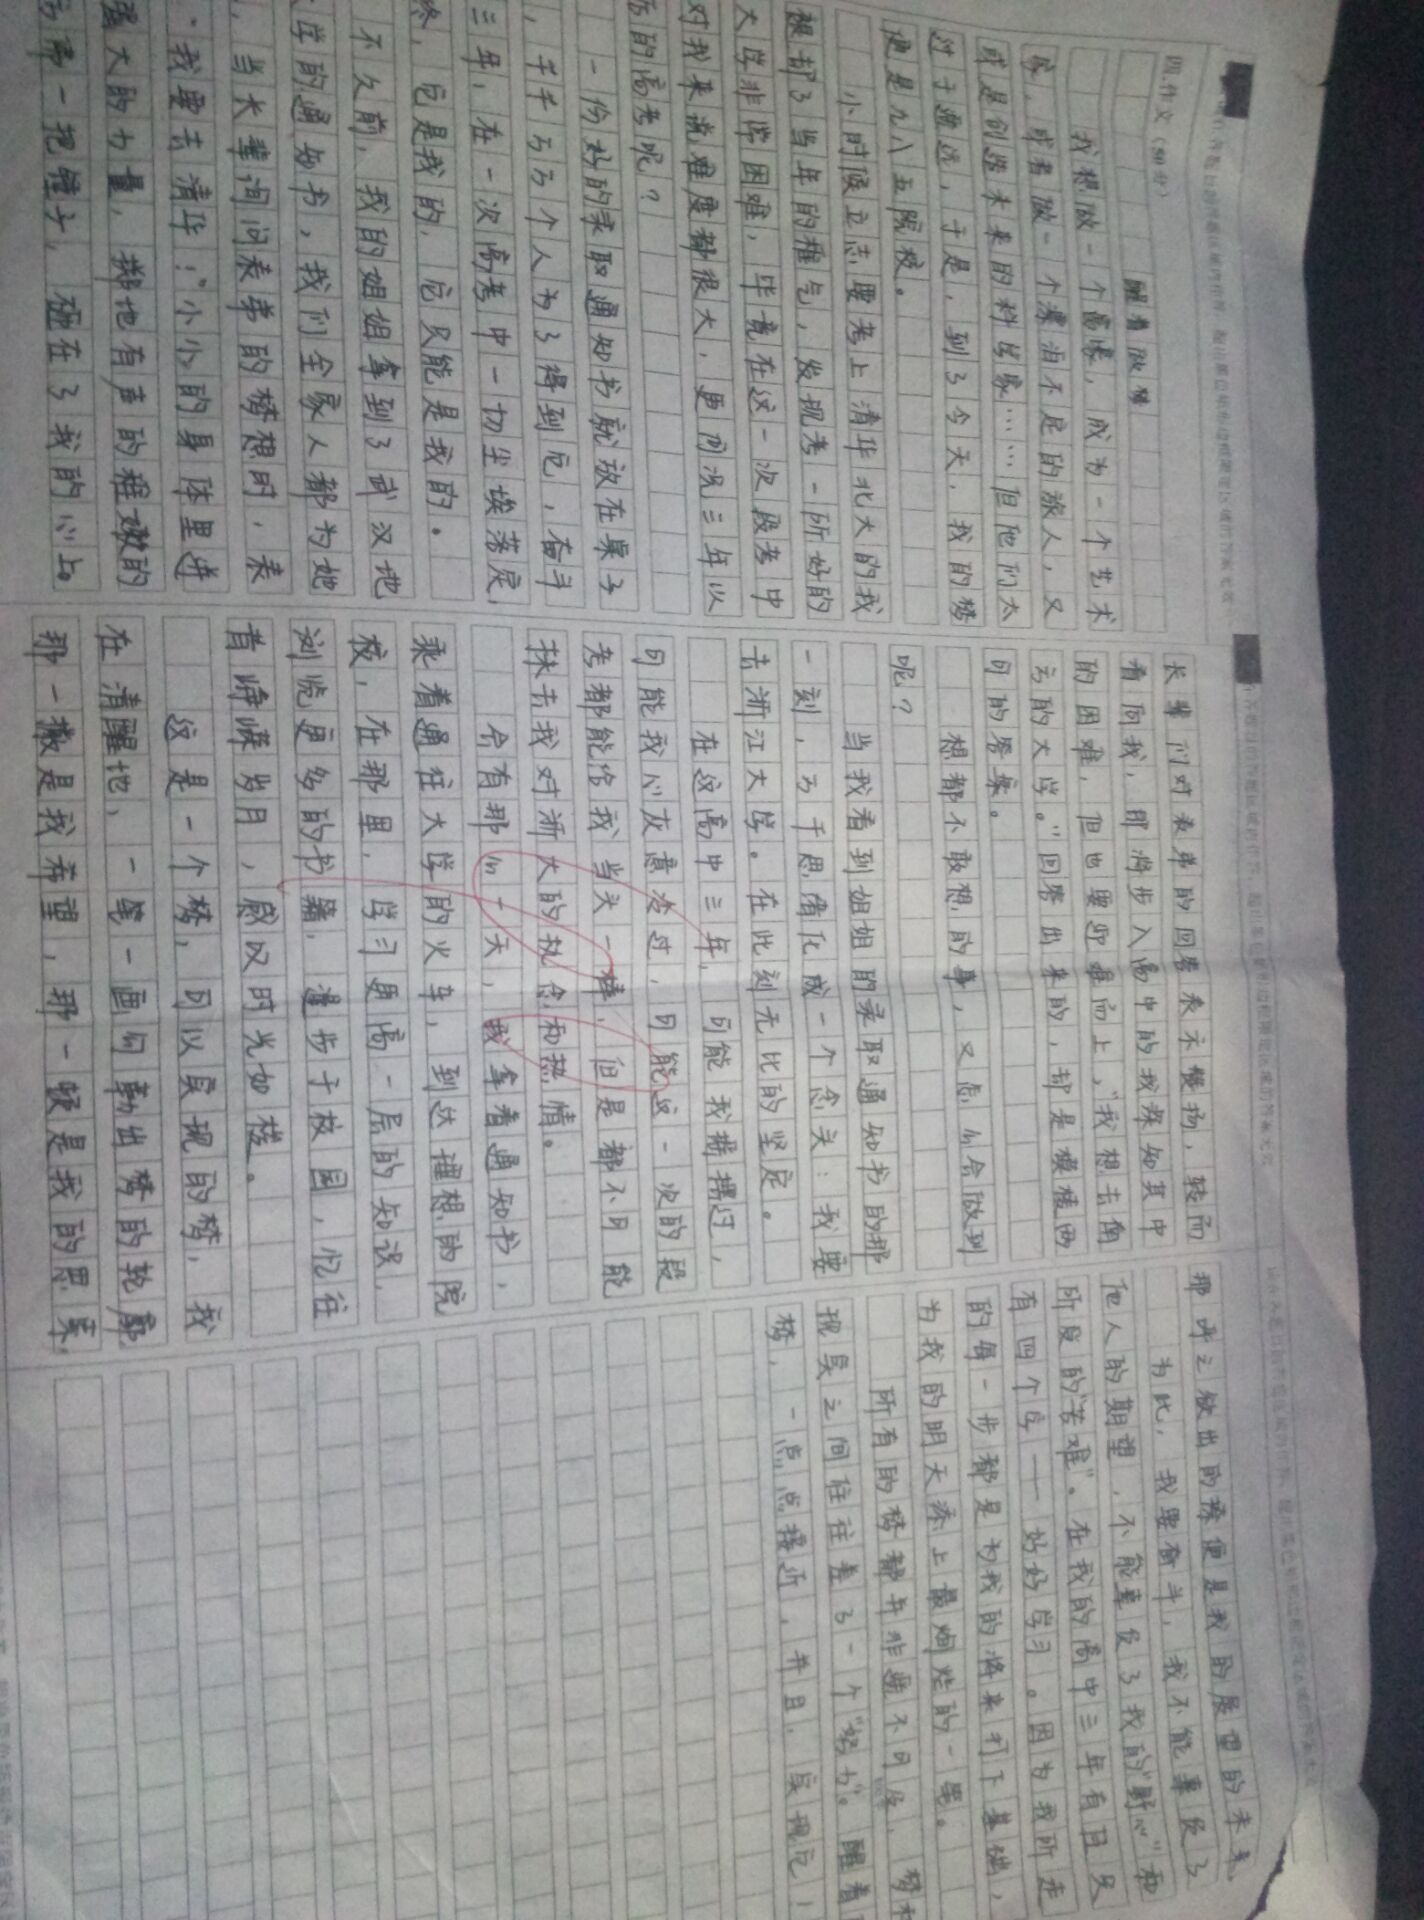 四.作文（50分）
醒着做梦
我想做一个富豪，成为一个艺术
家，或者做一个漂泊不定的旅人，又
或是创造未来的科学家……但他们太
过于遥远，于是，到了今天，我的梦
便是九八五院校。
小时候立志要考上清华北大的我
褪却了当年的稚气，发现考一所好的
大学非常困难，毕竟在这一次段考中
对我来说难度都很大，更何况三年以
后的高考呢？
一份好的录取通知书就放在桌子
，千千万万个人为了得到它，奋斗
三年，在一次高考中一切尘埃落定，
终，它是我的，它只能是我的。
不久前，我的姐姐拿到了武汉地
学的通知书，我们全家人都为她
，当长辈询问表弟的梦想时，表
“我要去清华！”小小的身体里迸
强大的力量，掷地有声的稚嫩的
一把锤子，砸在了我的心上。
长辈们对表弟的回答表示赞扬，转而
看向我，即将步入高中的我深知其中
的困难，但也要迎难而上，“我想去南
方的大学。”回答出来的，却是模棱两
可的答案。
想都不敢想的事，又怎么会做到
呢？
当我看到姐姐的录取通知书的那
一刻，万千思绪化成一个念头：我要
去浙江大学。在此刻无比的坚定。
在这高中三年，可能我拼搏过，
可能我心灰意冷过，可能这一次的段
考都能给我当头一棒，但是都不可能
抹去我对浙大的执念和热情。
会有那么一天，我拿着通知书，
乘着通往大学的火车，到达理想的院
校，在那里，学习更高一层的知识，
浏览更多的书籍，漫步于校园，忆往
昔峥嵘岁月，感叹时光如梭。
这是一个梦，可以实现的梦，我
在清醒地，一笔一画勾勒出梦的轮廓，
那一撇是我希望，那一顿是我的思索，
那呼之欲出的捺便是我的展望的未来，
为此，我要奋斗，我不能辜负了
他人的期望，不能辜负了我的“野心”和
所受的“苦难”。在我的高中三年有且只
有四个字——好好学习。因为我所走
的每一步都是为我的将来打下基础，
为我的明天添上最绚烂的一笔。
所有的梦都并非遥不可及，梦和
现实之间往往差了一个“努力”。醒着
梦，一点点接近，并且，实现它，